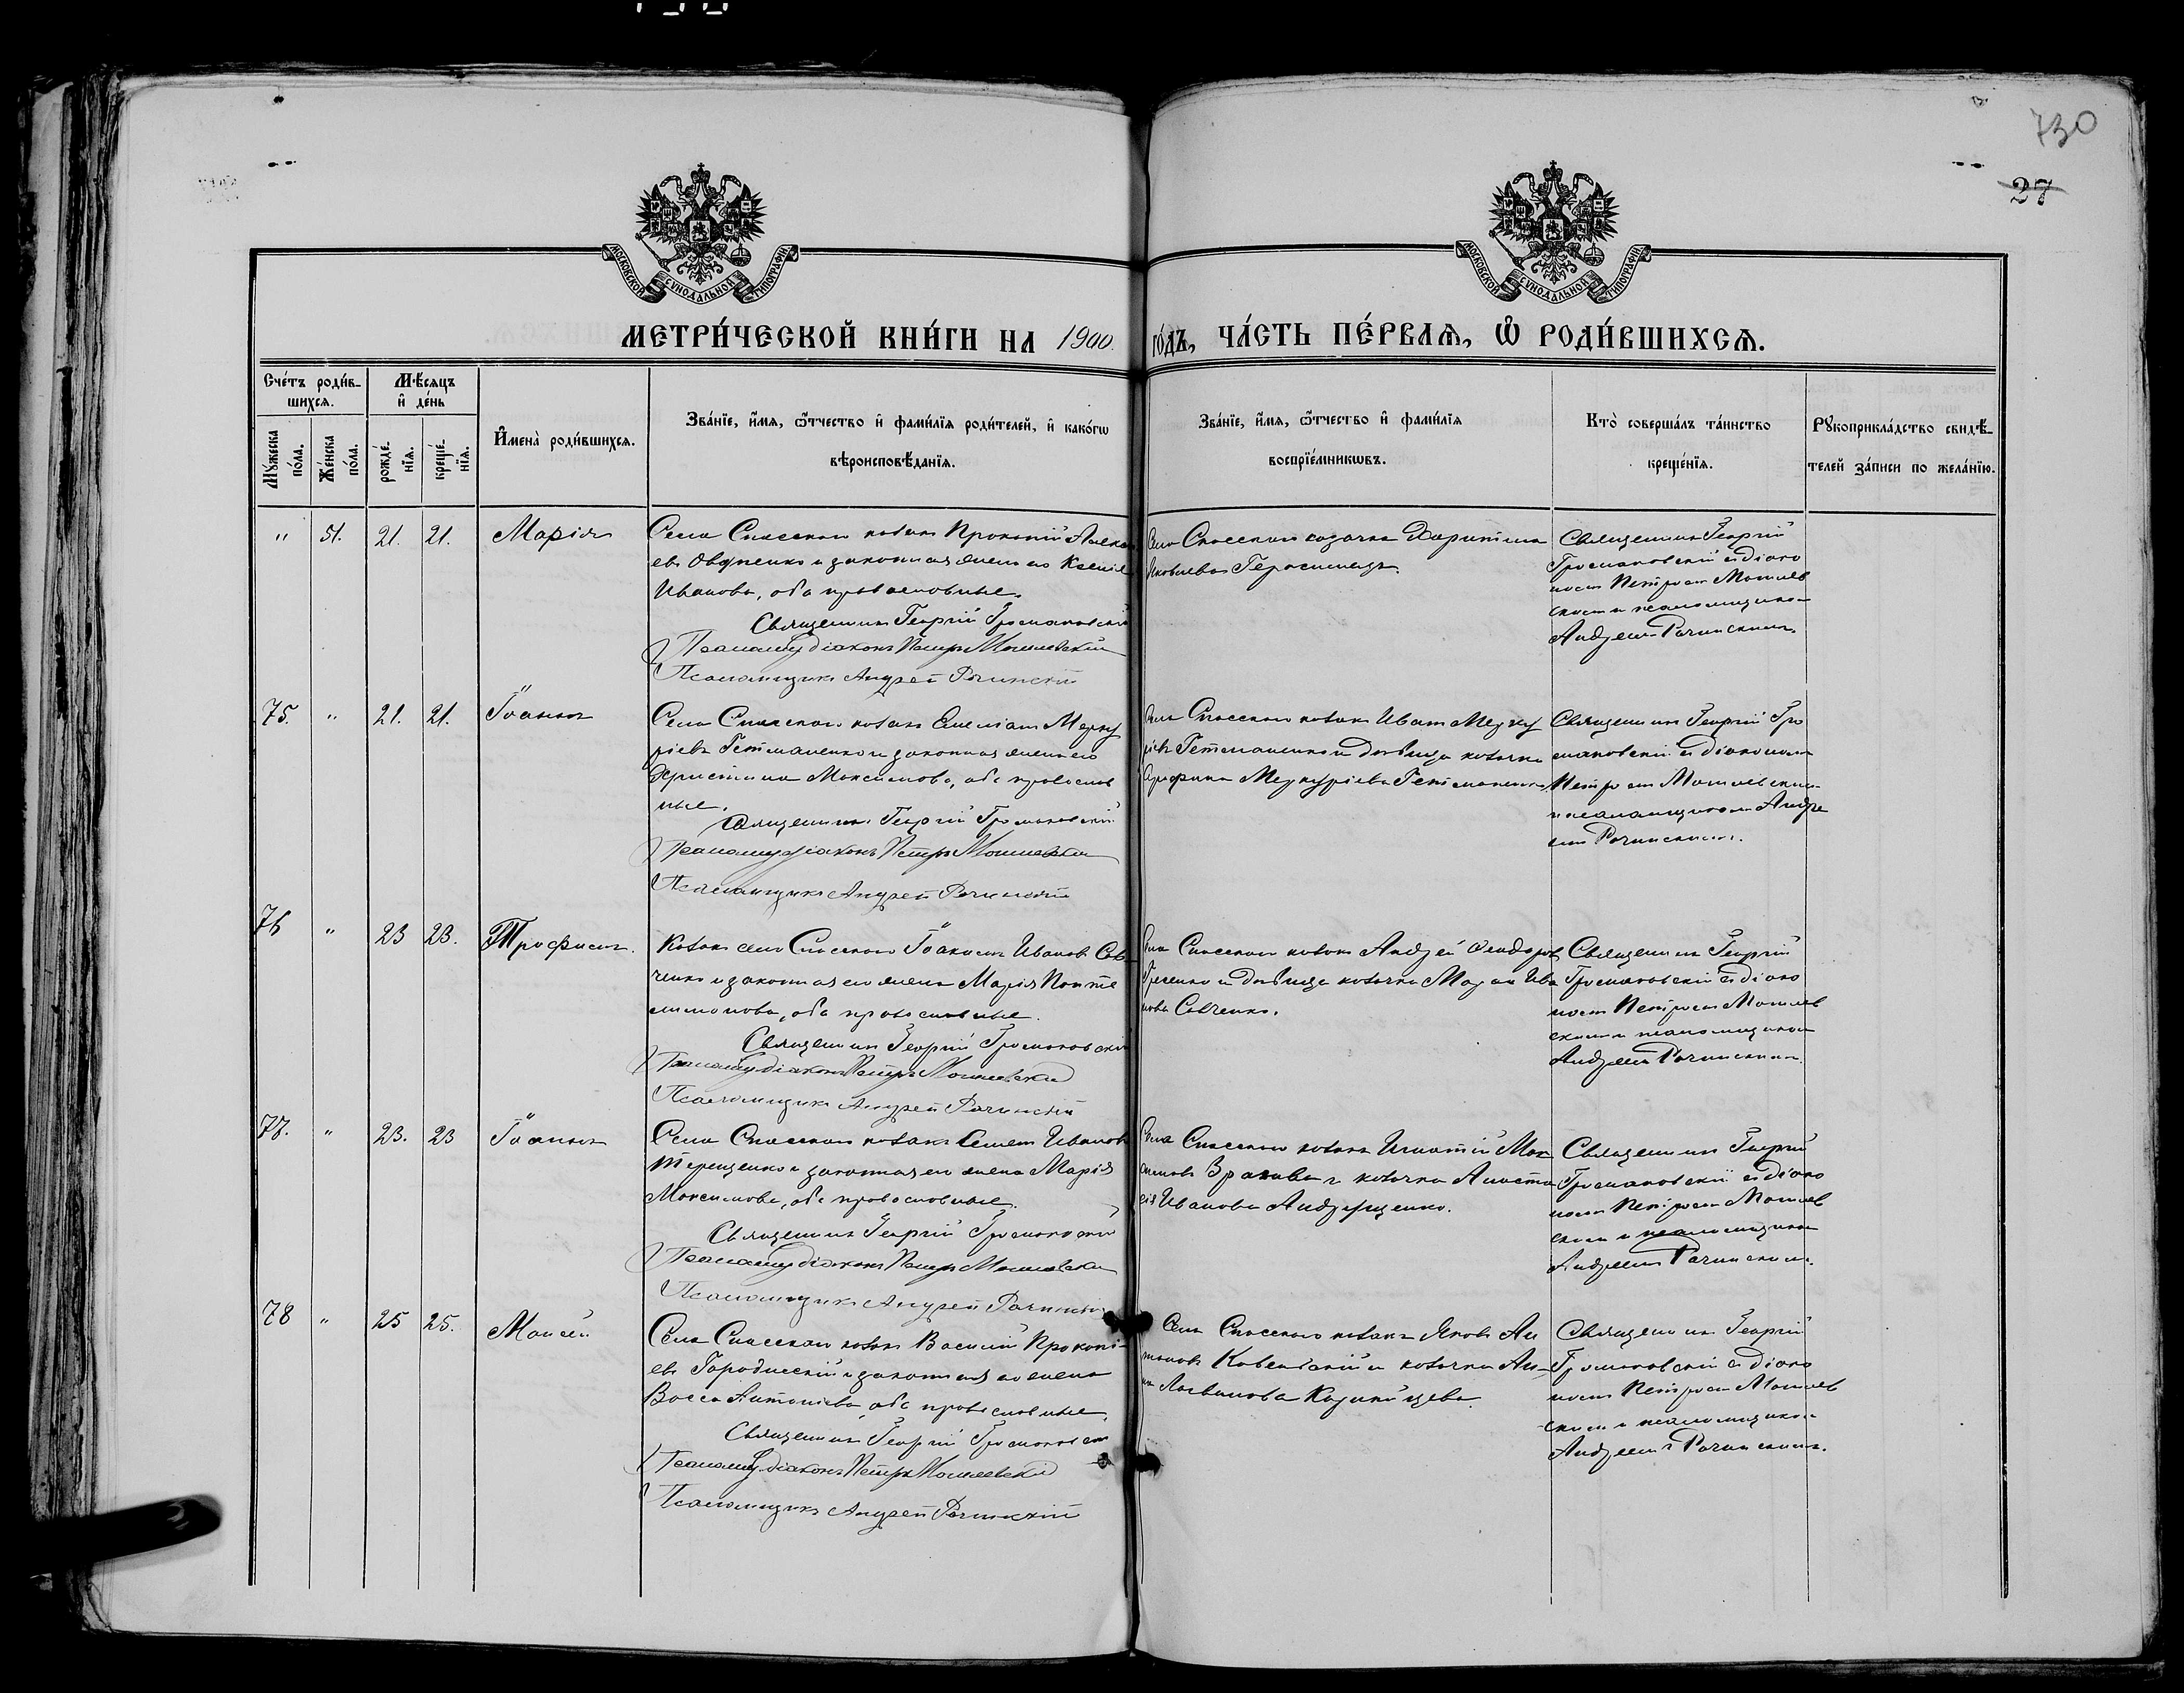 730
27
МОСКОВСКОЙ СѴНОДАЛЬНОЙ ТИПОГРАФІИ
МОСКОВСКОЙ СѴНОДАЛЬНОЙ ТИПОГРАФІИ
МЕТРИ́ЧЕСКОЙ КНИ́ГИ НА 1900. ГО́ДЪ, ЧА́СТЬ ПЕ́РВАѦ, Ѡ҆ РОДИ́ВШИХСѦ.
Сче́тъ роди́в-
шихсѧ.
Мꙋ́жеска по́ла.
Же́нска по́ла.
Мѣ́сѧцъ
и҆ де́нь
рожде́-
нїѧ.
креще́-
нїѧ.
И҆мена̀ роди́вшихсѧ.
Зва́нїе, и҆́мѧ, ѻ҆́тчество и҆ фами́лїѧ роди́телей, и҆ како́гѡ
вѣроисповѣ́данїѧ.
Зва́нїе, и҆́мѧ, ѻ҆́тчество и҆ фами́лїѧ
воспрїе́мникѡвъ.
Кто̀ соверша́лъ та́инство
креще́нїѧ.
Рꙋкоприкла́дство свидѣ́-
телей за́писи по жела́нїю.
" 51. 21. 21. Марія
Села Спасскаго козакъ Прокопій Алекс
евъ Овдіенко и законная жена его Ксенія
Иванова, оба православные.
Священникъ Георгій Громаковскій
Діаконъ Петръ Могилевскій
Псаломщикъ Андрей Рачинскій
Села Спасскаго козачка Харитина
Яковлева Герасимецъ.
Священникъ Георгій
Громаковскій съ діако
номъ Петромъ Могилев
скимъ и псаломщикомъ
Андреемъ Рачинскимъ.
75. " 21. 21. Іоаннъ
Села Спасскаго козакъ Емеліанъ Мерку
ріевъ Гетманенко и законная жена его
Христина Максимова, оба православ
ные.
Священникъ Георгій Громаковскій
Діаконъ Петръ Могилевскій
Псаломщикъ Андрей Рачинскій
Села Спасскаго козакъ Иванъ Мерку
ріевъ Гетманенко и дѣвица козачка
Меркуріева Гетманенко.
Священникъ Георгій Гро
маковскій съ діакономъ
Петромъ Могилевскимъ
и псаломщикомъ Андре
емъ Рачинскимъ.
76 " 23 23. Трофимъ.
Козакъ села Спасскаго Іоакимъ Ивановъ Сав
ченко и законная его жена Марія Панте
лимонова, оба православные.
Священникъ Георгій Громаковскій
Діаконъ Петръ Могилевскій
Псаломщикъ Андрей Рачинскій
Села Спасскаго козакъ Андрей Феодоровъ
и дѣвица козачка Ива
нова Савченко.
Священникъ Георгій
Громаковскій съ діако
номъ Петромъ Могилев
скимъ и псаломщикомъ
Андреемъ Рачинскимъ.
77. " 23. 23 Іоаннъ
Села Спасскаго козакъ Ивановъ
Терещенко и законная его жена Марія
Максимова, оба православные.
Священникъ Георгій Громаковскій
Діаконъ Петръ Могилевскій
Псаломщикъ Андрей Рачинскій
Села Спасскаго козакъ Игнатій Мак
симовъ и козачка Анаста
сія Иванова Андрущенко.
Священникъ Георгій
Громаковскій съ діако
номъ Петромъ Могилев
скимъ и псаломщикомъ
Андреемъ Рачинскимъ.
78 " 25 25. Моисей
Села Спасскаго козакъ Василій Прокопі-
евъ Городисскій и законная его жена
Васса Антоніева, оба православные.
Священникъ Георгій Громаковскій
Діаконъ Петръ Могилевскій
Псаломщикъ Андрей Рачинскій
Села Спасскаго козакъ Яковъ Ан
тоновъ и козачка Ан-
на
Священникъ Георгій
Громаковскій съ діако
номъ Петромъ Могилев
скимъ и псаломщикомъ
Андреемъ Рачинскимъ.